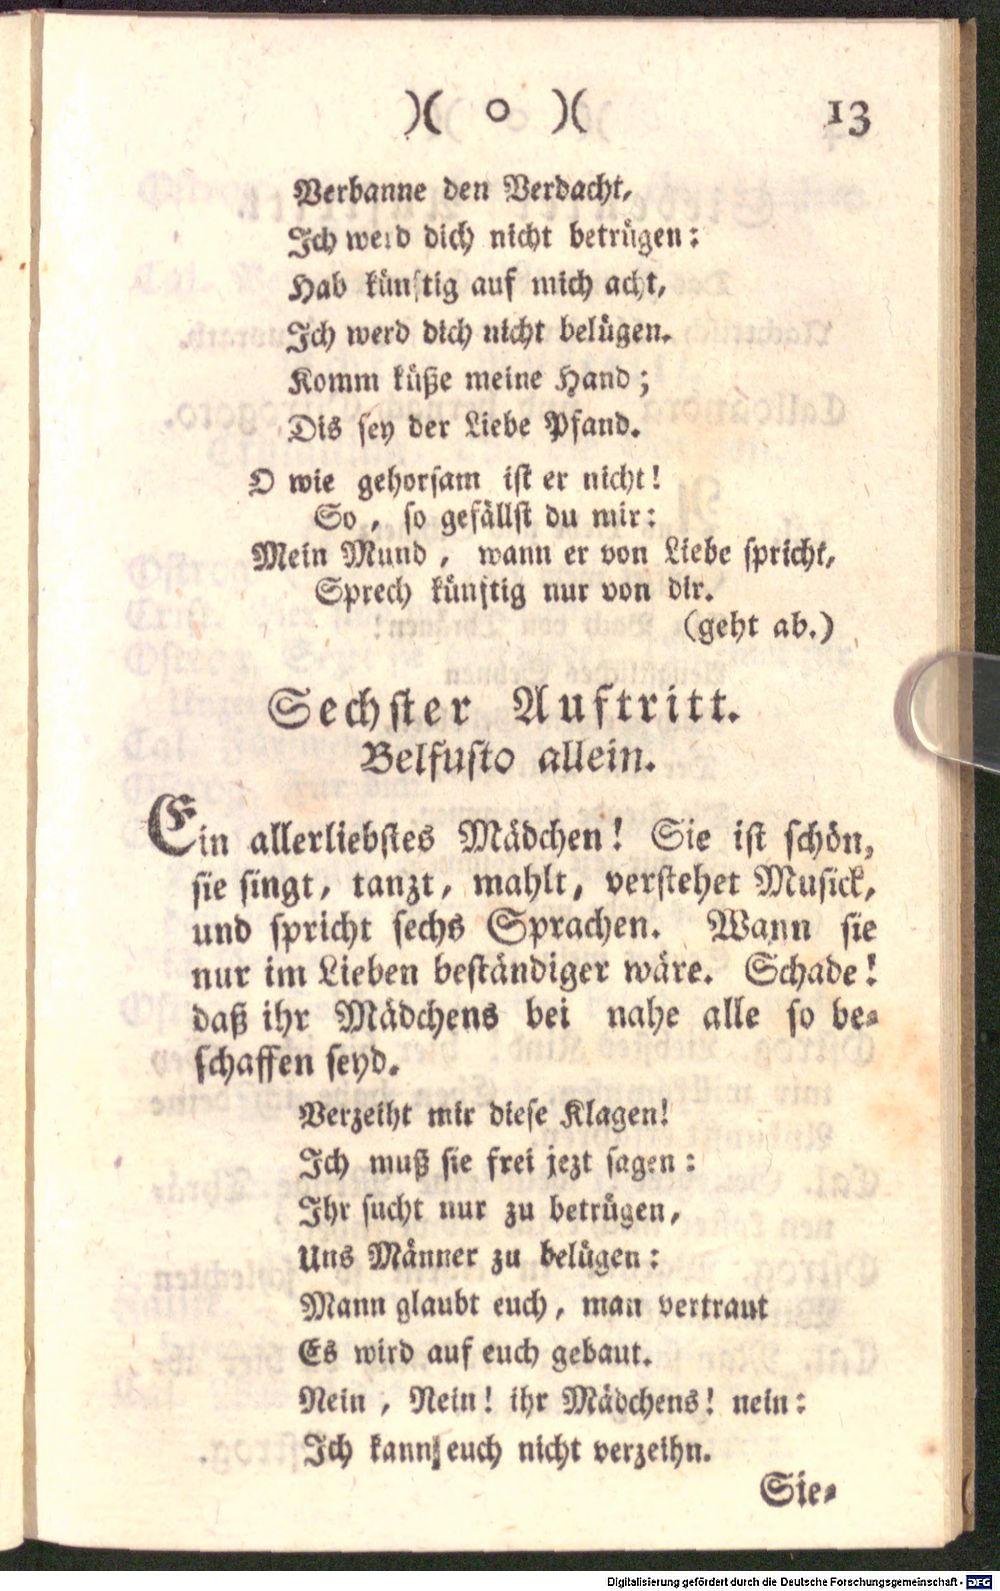 )( o )( 13
Verbanne den Verdacht,
Ich werd dich nicht betrügen:
Hab künftig auf mich acht,
Ich werd dich nicht belügen.
Komm küße meine Hand;
Dis sey der Liebe Pfand.
O wie gehorsam ist er nicht!
So, so gefällst du mir:
Mein Mund, wann er von Liebe spricht,
Sprech künftig nur von dir.
(geht ab.)
Sechster Auftritt.
Belfusto allein.
Ein allerliebstes Mädchen! Sie ist schön,
sie singt, tanzt, mahlt, verstehet Musick,
und spricht sechs Sprachen. Wann sie
nur im Lieben beständiger wäre. Schade!
daß ihr Mädchens bei nahe alle so be-
schaffen seyd.
Verzeiht mir diese Klagen!
Ich muß sie frei jezt sagen:
Ihr sucht nur zu betrügen,
Uns Männer zu belügen:
Mann glaubt euch, man vertraut
Es wird auf euch gebaut.
Nein, Nein! ihr Mädchens! nein:
Ich kann euch nicht verzeihn.
Sie-
Digitalisierung gefördert durch die Deutsche Forschungsgemeinschaft - DFG